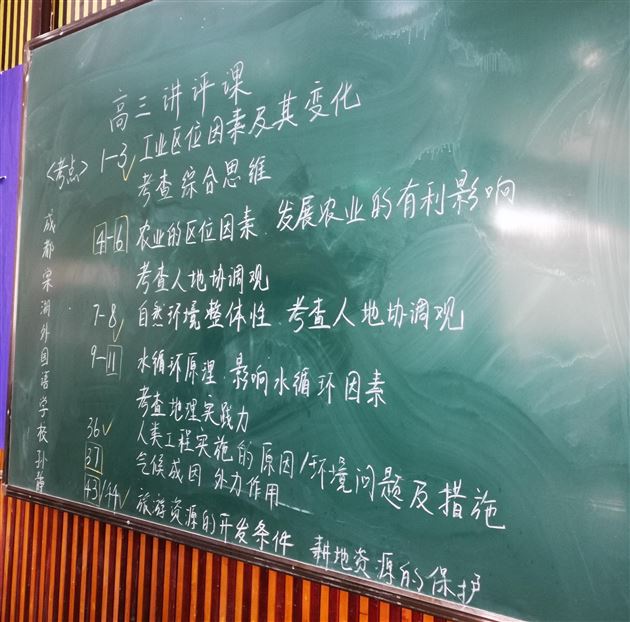 高三讲评课
<考点> 1-3 工业区位因素及其变化
考查综合思维
4-6 农业的区位因素、发展农业的有利影响
考查人地协调观
7-8 自然环境整体性、考查人地协调观
9-11 水循环原理、影响水循环因素
考查地理实践力
36 人类工程实施的原因/环境问题及措施
37 气候成因 外力作用
43/44 旅游资源的开发条件 耕地资源的保护
成都棠湖外国语学校 孙